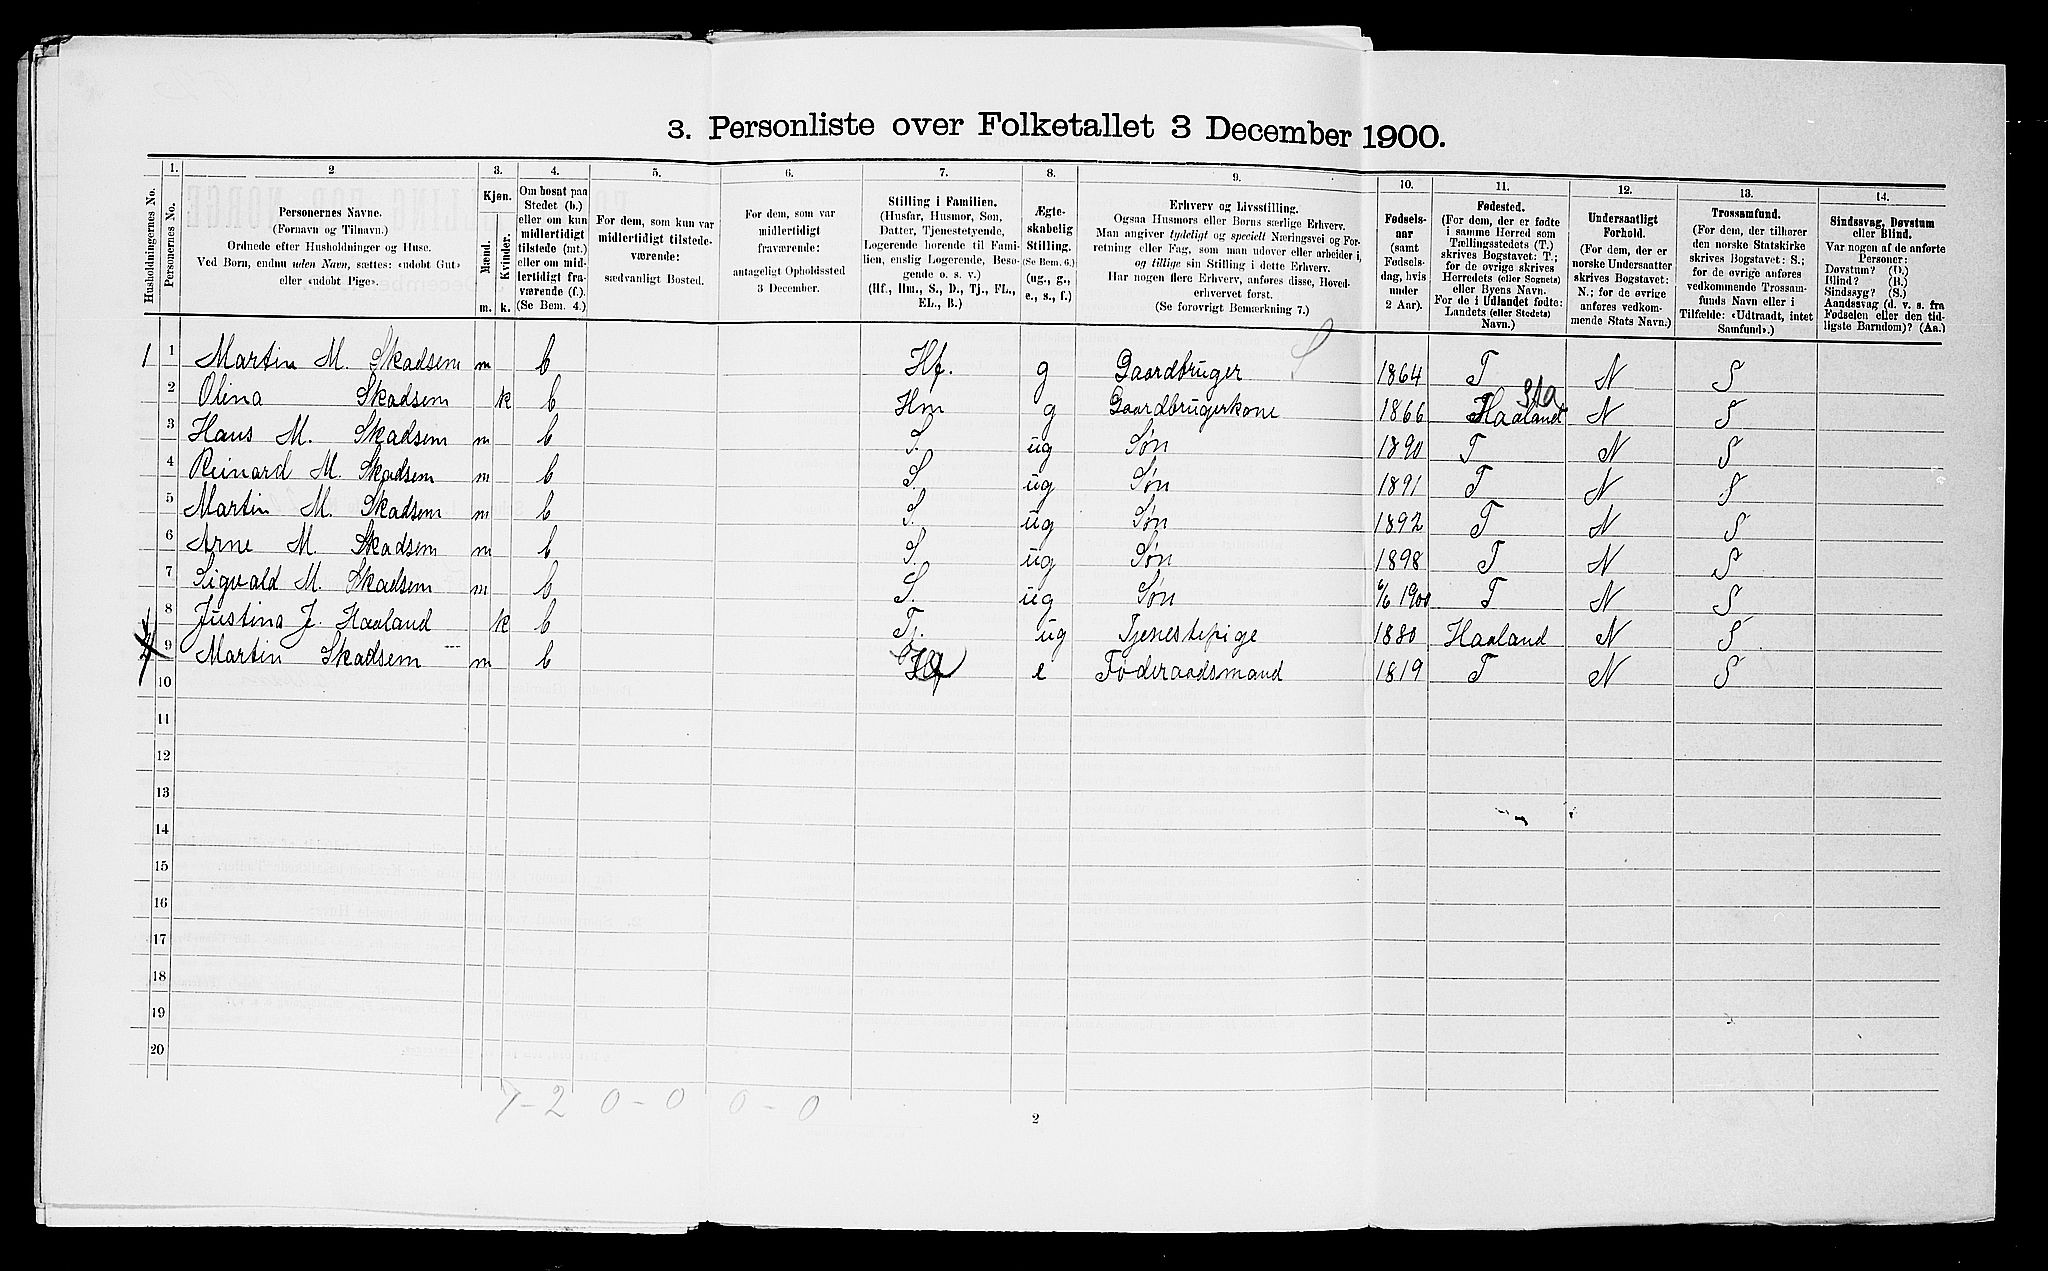 3. Personliste over Folketallet 3 December 1900.
Husholdningernes No.
1.
Personernes No.
2
Personernes Navne.
(Fornavn og Tilnavn.)
Ordnede efter Husholdninger og Huse.
Ved Børn, endnu uden Navn, sættes: «udøbt Gut»
eller «udøbt Pige».
3.
Kjøn.
Mænd.
Kvinder.
m. k.
4.
Om bosat paa
Stedet (b.)
eller om kun
midlertidigt
tilstede (mt.)
eller om mid-
lertidigt fra-
værende (f.).
(Se Bem. 4.)
5.
For dem, som kun var
midlertidigt tilstede-
værende:
sædvanligt Bosted.
6.
For dem, som var
midlertidigt
fraværende:
antageligt Opholdssted
3 December.
7.
Stilling i Familien.
(Husfar, Husmor, Søn,
Datter, Tjenestetyende,
Logerende hørende til Fami-
lien, enslig Logerende, Besø-
gende o. s. v.)
(Hf., Hm., S., D., Tj., FL.,
EL., B.)
8.
Ægte-
skabelig
Stilling.
(Se Bem. 6.)
(ug., g.,
e., s., f.)
9.
Erhverv og Livsstilling.
Ogsaa Husmors eller Børns særlige Erhverv.
Man angiver tydeligt og specielt Næringsvei og For-
retning eller Fag, som man udøver eller arbeider i,
og tillige sin Stilling i dette Erhverv.
Har nogen flere Erhverv, anføres disse, Hoved-
erhvervet først.
(Se forøvrigt Bemærkning 7.)
10.
Fødsels-
aar
(samt
Fødsels-
dag, hvis
under
2 Aar).
11.
Fødested.
(For dem, der er fødte
i samme Herred som
Tællingsstedets (T.)
skrives Bogstavet: T.;
for de øvrige skrives
Herredets (eller Sognets)
eller Byens Navn.
For de i Udlandet fødte:
Landets (eller Stedets)
Navn.)
12.
Undersaatligt
Forhold.
(For dem, der er
norske Undersaatter
skrives Bogstavet:
N.; for de øvrige
anføres vedkom-
mende Stats Navn.)
13.
Trossamfund.
(For dem, der tilhører
den norske Statskirke
skrives Bogstavet: S.;
for de øvrige anføres
vedkommende Trossam-
funds Navn eller i
Tilfælde: «Udtraadt, intet
Samfund».)
14.
Sindssvag, Døvstum
eller Blind.
Var nogen af de anførte
Personer:
Døvstum? (D.)
Blind? (B.)
Sindssyg? (S.)
Aandssvag (d. v. s. fra
Fødselen eller den tid-
ligste Barndom)? (Aa.)
1 1 Martin M. Skadsem m b Hf. g Gaardbruger S 1864 T N S
2 Olina Skadsem k b Hm g Gaardbrugerkone 1866 Haaland N S
3 Hans M. Skadsem m b S. ug Søn 1890 T N S
4 Reinard M. Skadsem m b S. ug Søn 1891 T N S
5 Martin M. Skadsem m b S. ug Søn 1892 T N S
6 Arne M. Skadsem m b S. ug Søn 1898 T N S
7 Sigvald M. Skadsem m b S. ug Søn 6/6 1900 T N S
8 Justina J. Haaland k b Tj. ug Tjenestepige 1880 Haaland N S
9 Martin Skadsem m b e Føderaadsmand 1819 T N S
10
11
12
13
14
15
16
17
18
19
20
7-2 0-0 0-0
2